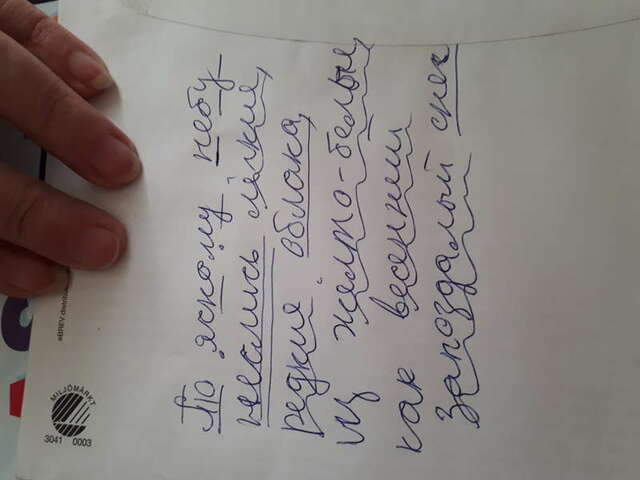 По яскому небу
неслись лёгкие,
редкие облака,
из желто-белые,
как весенний
запоздалый снег
MILJÖMÄRKT
3041 0003